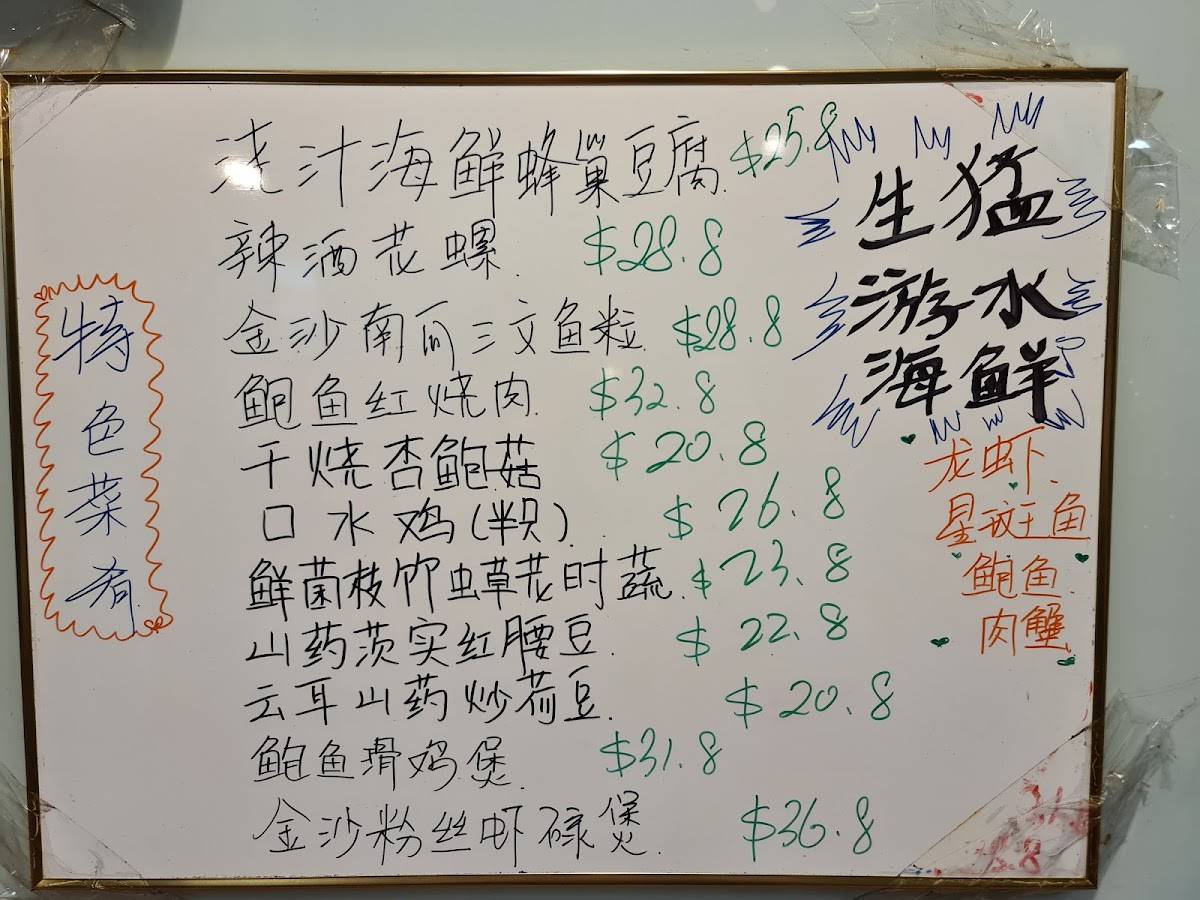 特色菜肴
浇汁海鲜蜂巢豆腐 $25.8
辣酒花螺 $28.8
金沙南瓜三文鱼粒 $28.8
鲍鱼红烧肉 $32.8
干烧杏鲍菇 $20.8
口水鸡(半只) $26.8
鲜菌枝竹虫草花时蔬 $23.8
山药茨实红腰豆 $22.8
云耳山药炒荷豆 $20.8
鲍鱼滑鸡煲 $31.8
金沙粉丝虾碌煲 $36.8
生猛
游水
海鲜
龙虾
星斑鱼
鲍鱼
肉蟹